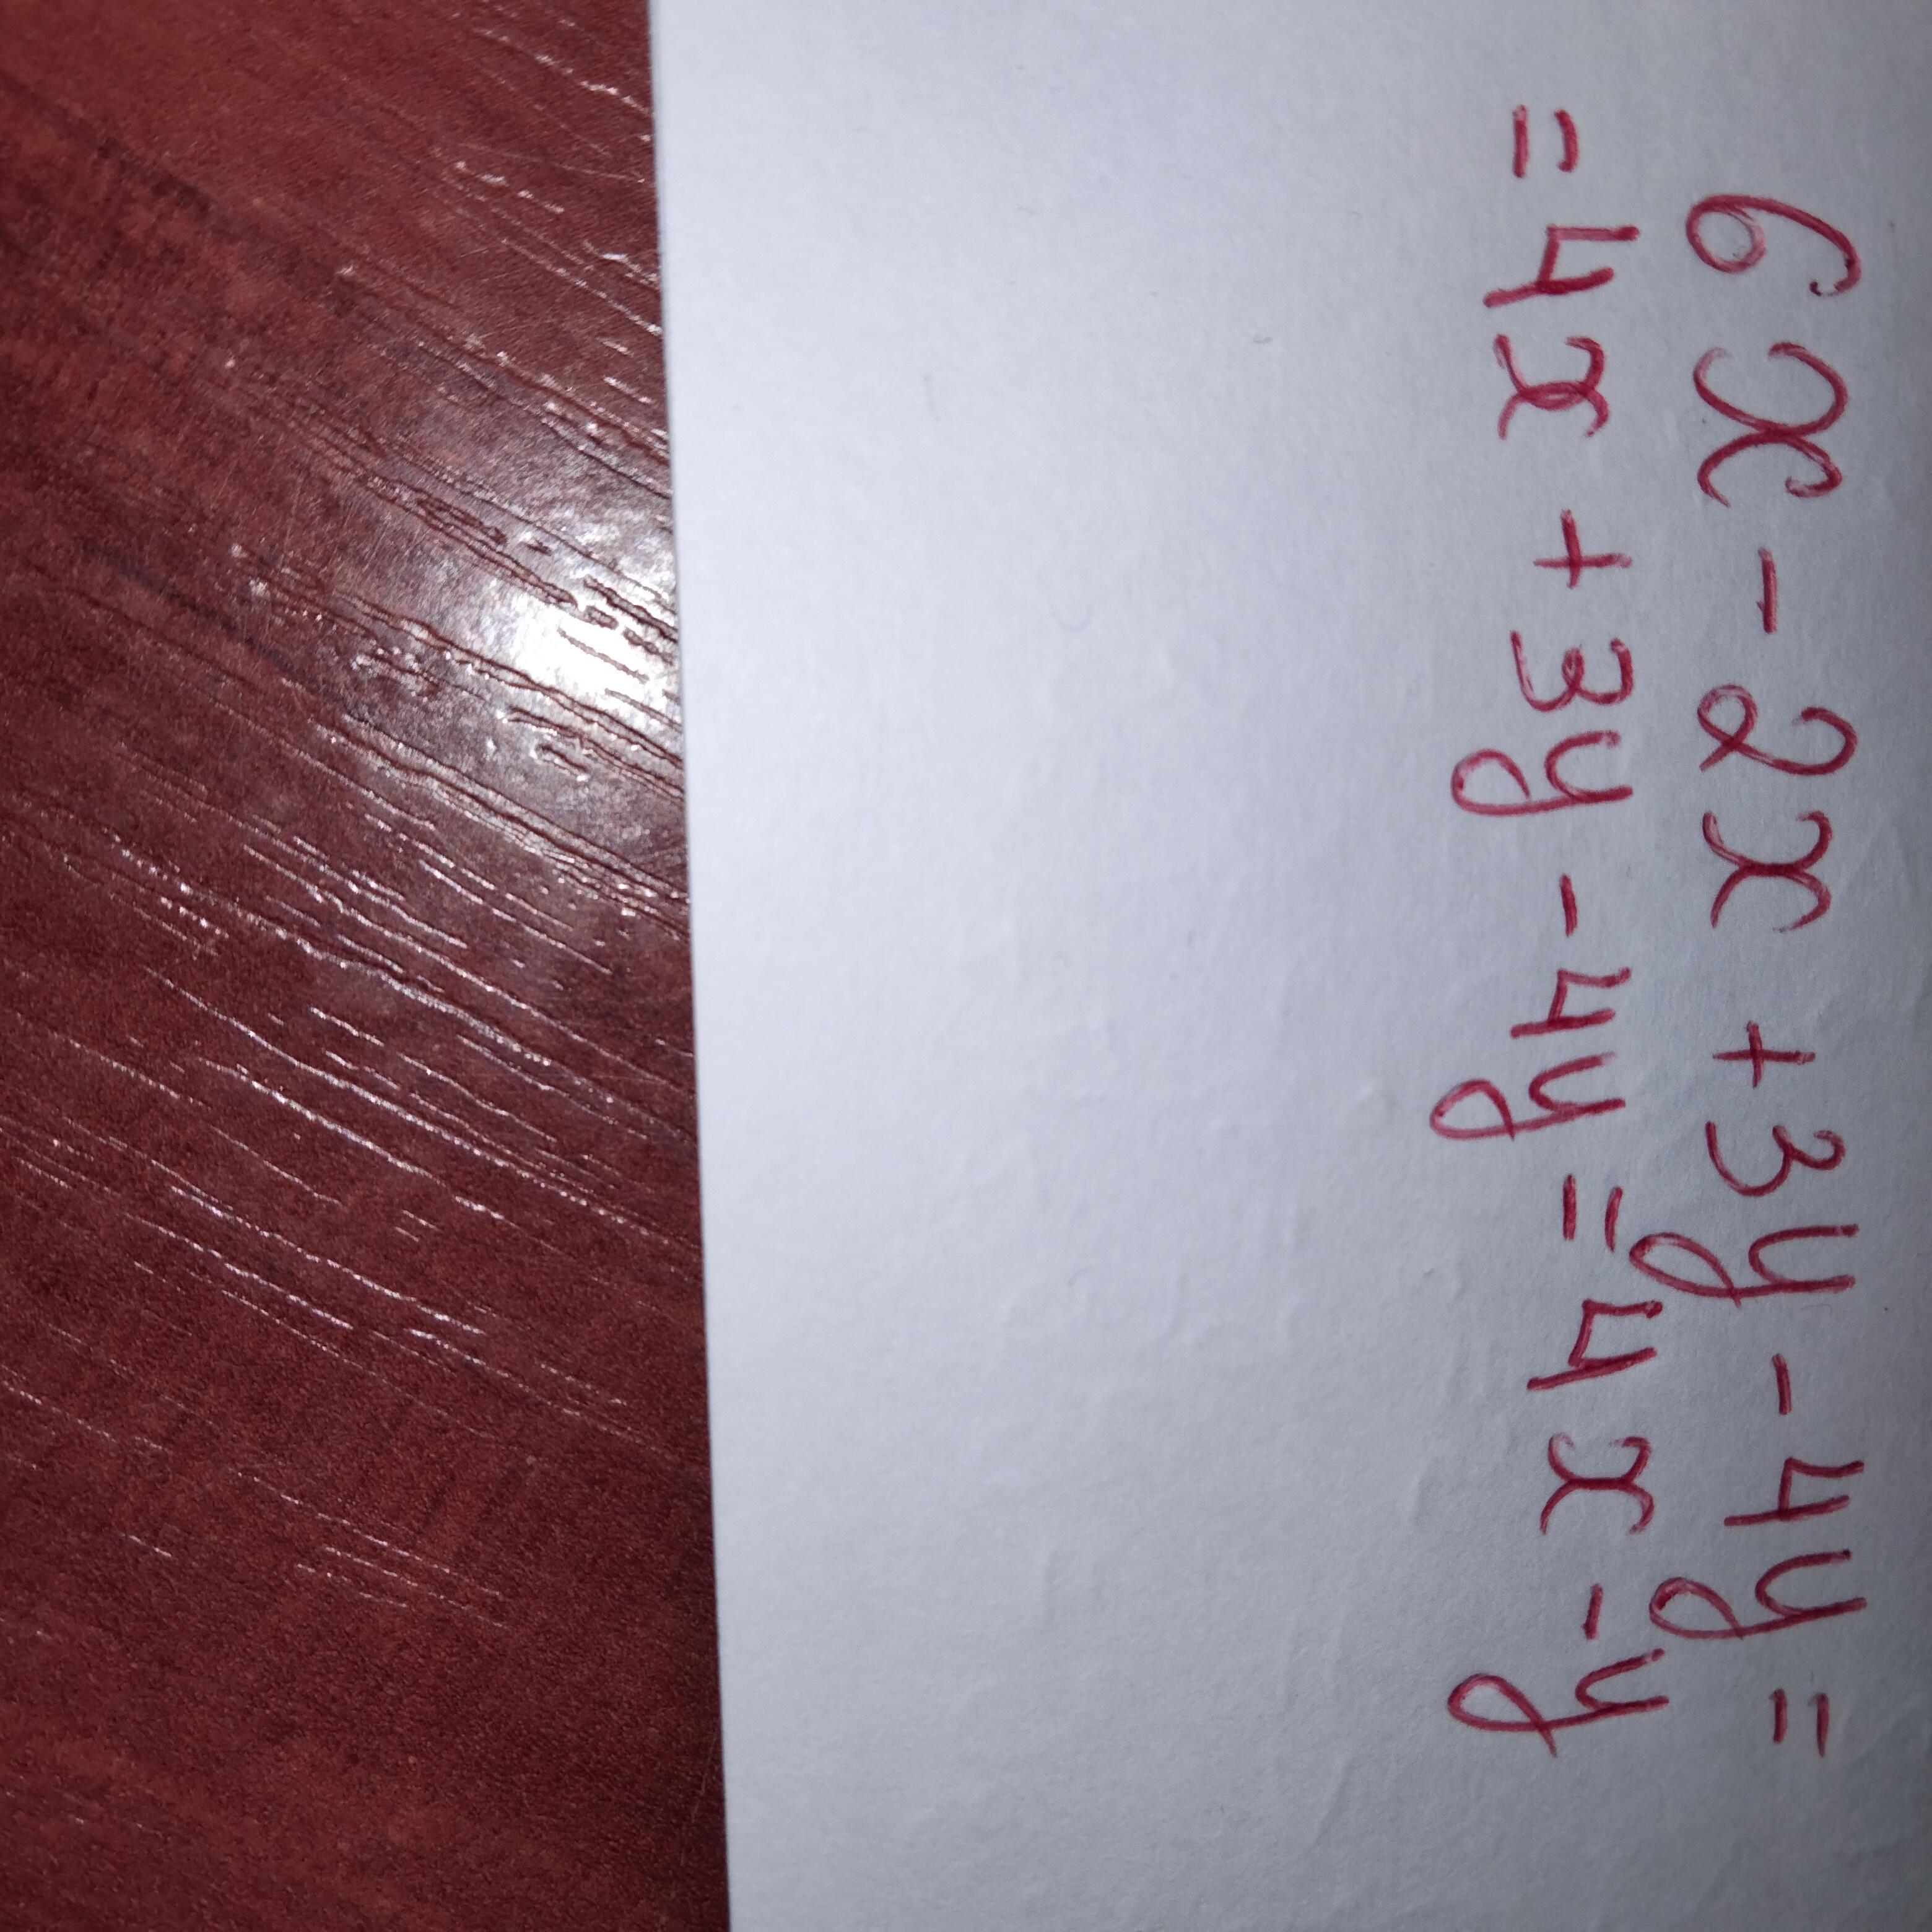 6x - 2x + 3y - 4y =
= 4x + 3y - 4y = 4x - y